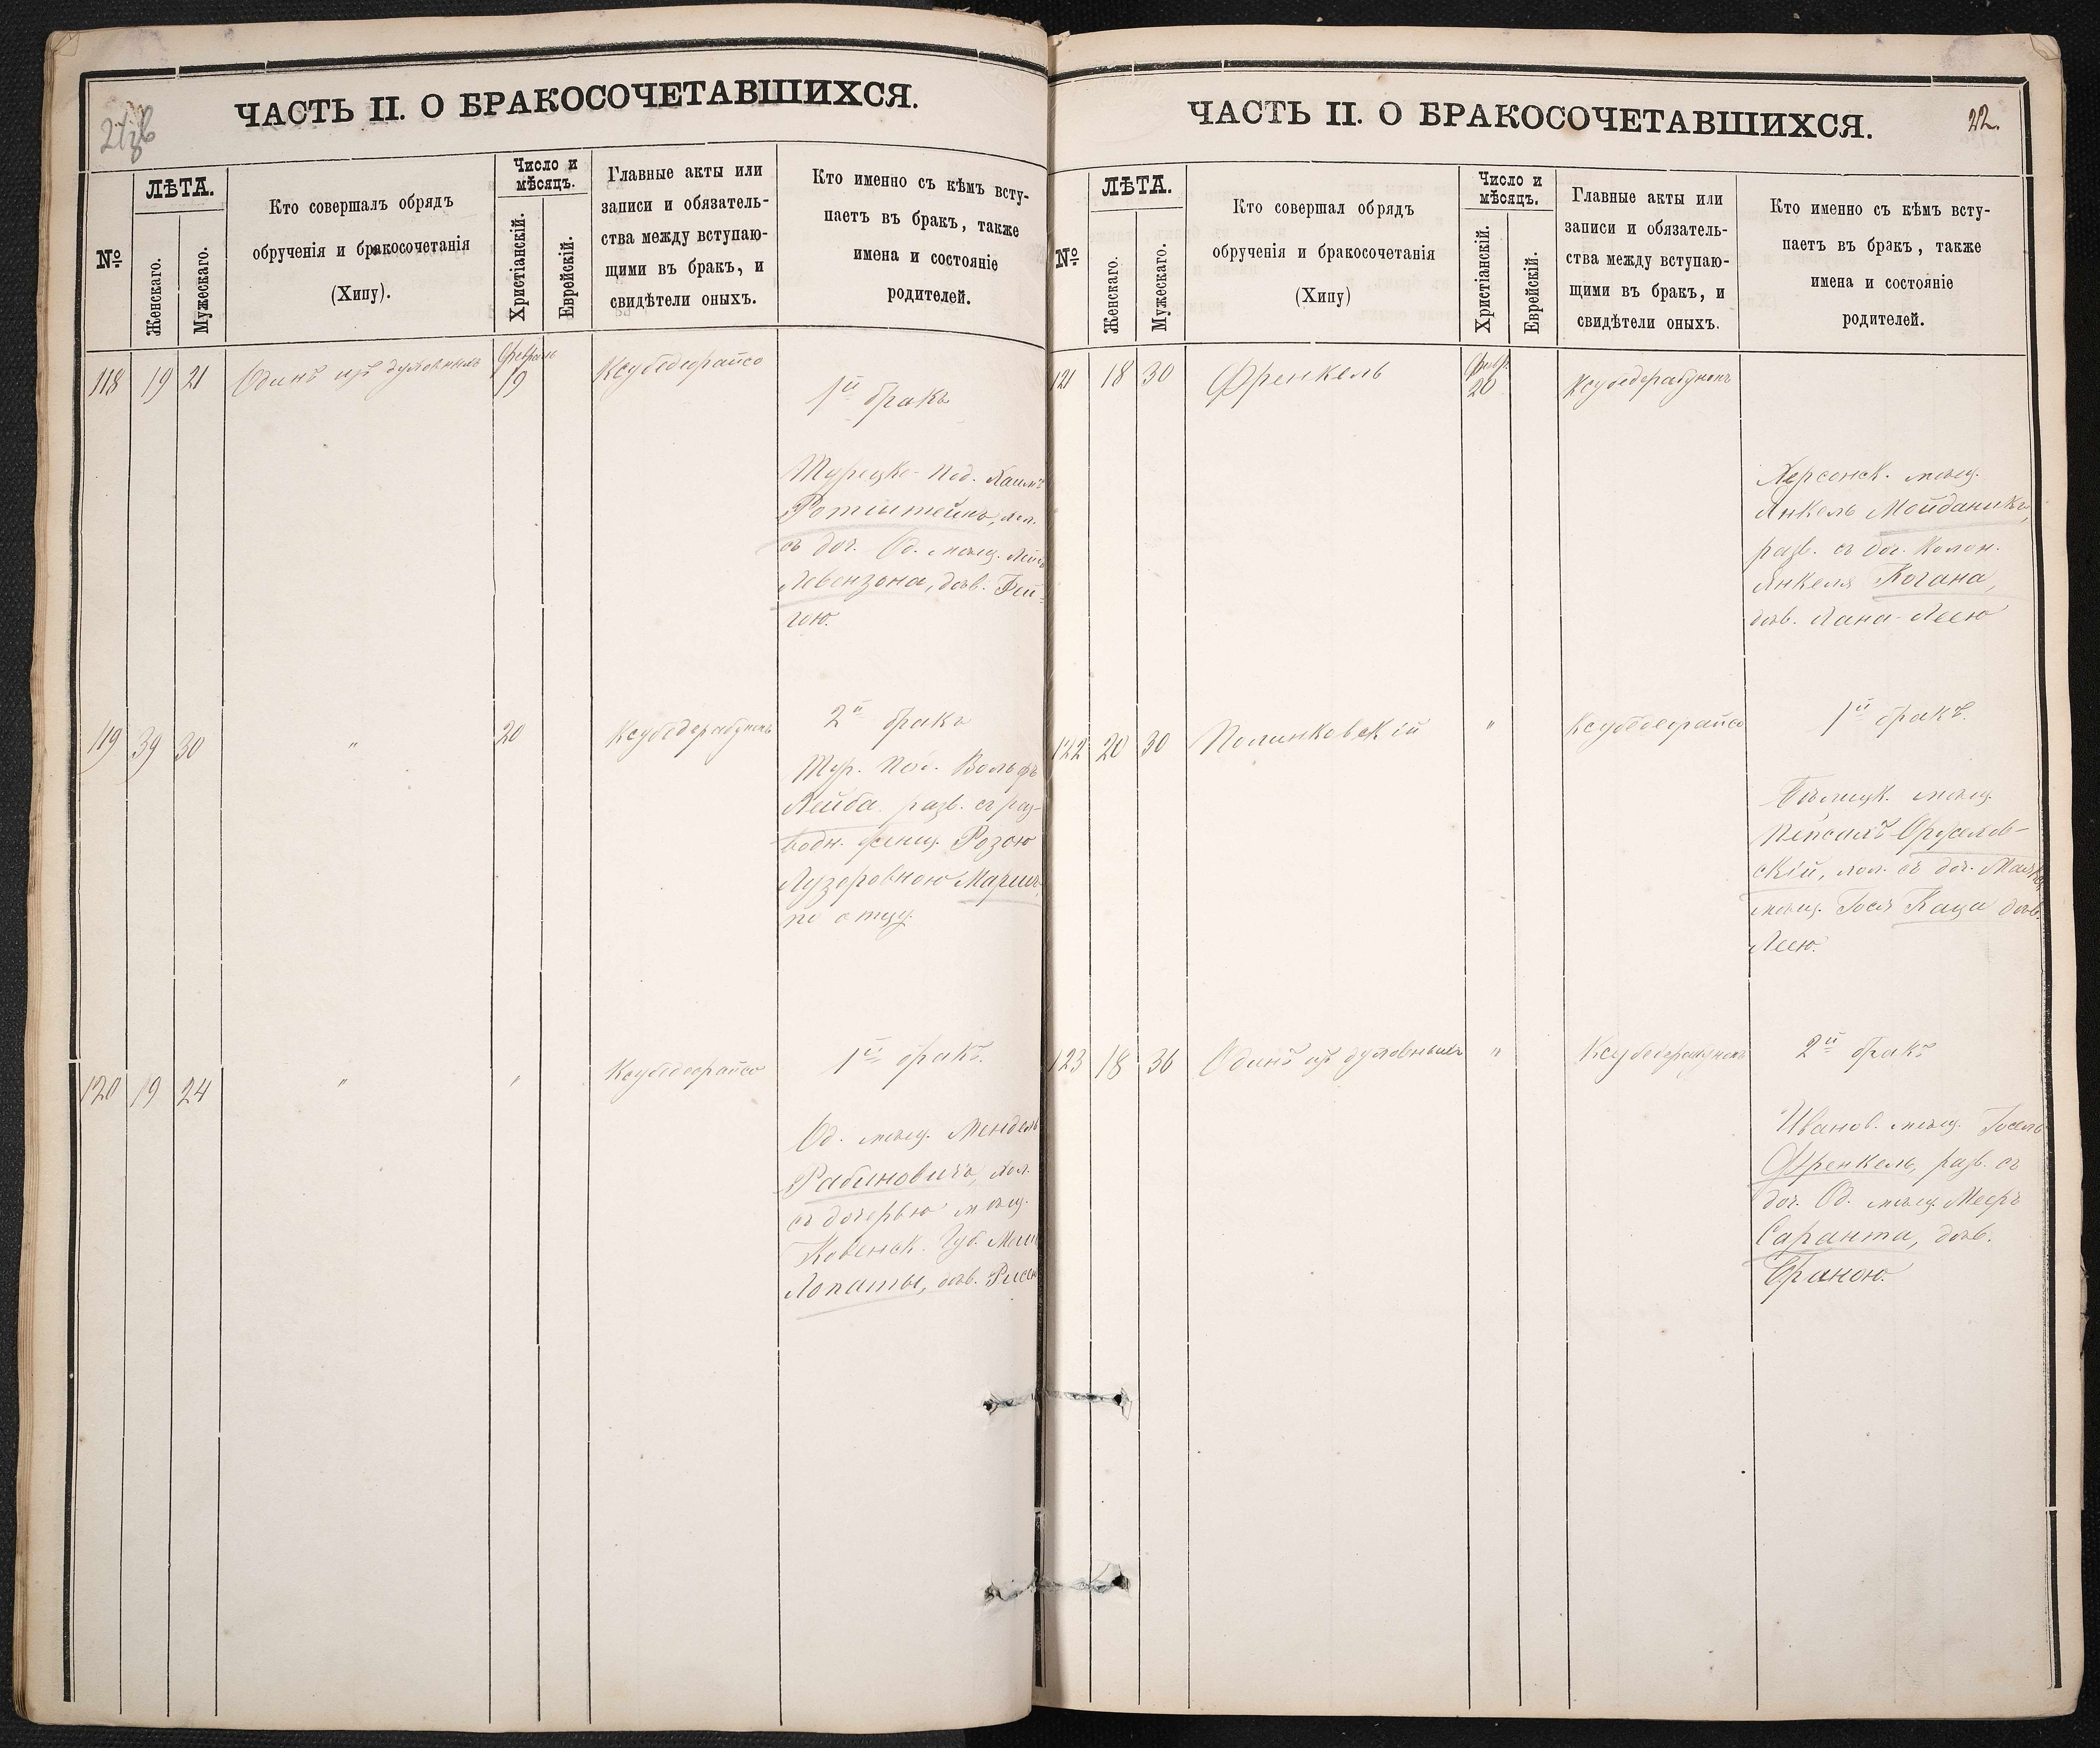 ЧАСТЬ II. О БРАКОСОЧЕТАВШИХСЯ.
№
ЛѢТА.
Женскаго.
Мужескаго.
Кто совершалъ обрядъ
обрученія и бракосочетанія
(Хипу).
Число и
мѣсяцъ.
Христіанскій.
Еврейскій.
Главные акты или
записи и обязатель-
ства между вступаю-
щими въ бракъ, и
свидѣтели оныхъ.
Кто именно съ кѣмъ всту-
паетъ въ бракъ, также
имена и состояніе
родителей.
118 19 21 Одинъ изъ духовныхъ
Февраль
19
Ксубедеорайсо
1й бракъ
Турецко-Под. Хаимъ
Ротштейнъ, хол.
съ доч. Од. мѣщ.
Левензона, дѣв. Гей-
гою.
119 39 30 " 20 Ксубедерабунонъ
2й бракъ
Тур. Под. Вольфъ
Лейба разв. съ раз-
водн. женщ. Розою
Лузоровною
по отцу.
120 19 24 " " Ксубедеорайсо
1й бракъ.
Од. мѣщ. Мендель
Рабиновичъ, хол.
съ дочерью мѣщ.
Ковенск. Губ.
Лопаты, дѣв.
ЧАСТЬ II. О БРАКОСОЧЕТАВШИХСЯ.
22.
№
ЛѢТА.
Женскаго.
Мужескаго.
Кто совершал обрядъ
обрученія и бракосочетанія
(Хипу)
Число и
мѣсяцъ.
Христіанскій.
Еврейскій.
Главные акты или
записи и обязатель-
ства между вступаю-
щими въ бракъ, и
свидѣтели оныхъ.
Кто именно съ кѣмъ всту-
паетъ въ бракъ, также
имена и состояніе
родителей.
121 18 30 Френкель
Февр.
20
Ксубедерабунонъ
Херсонск. мѣщ.
Янкель Мойданикъ,
разв. съ доч. колон.
Янкеля Когана,
дѣв. Хана-Леею
122 20 30 Полинковскій " Ксубедеорайсо
1й бракъ.
мѣщ.
скій, хол. съ доч.
мѣщ. Іося Каца дѣв.
Леею.
123 18 36 Одинъ изъ духовныхъ " Ксубедерабунонъ
2й бракъ
Иванов. мѣщ. Іосель
Френкель, разв. съ
доч. Од. мѣщ. Меера
Саранта, дѣв.
Браною.